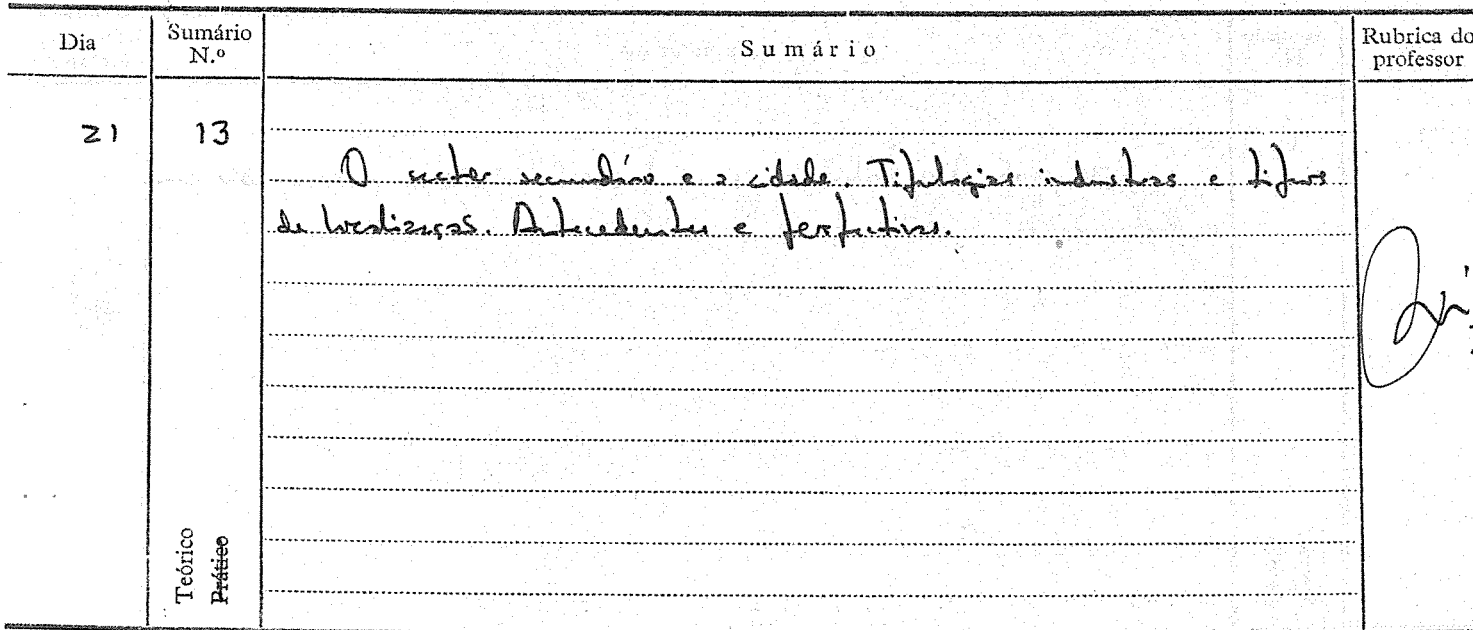 Dia Sumário N.º Sumário Rubrica do professor
21 13
O sector secundário e a cidade. Tipologias industriais e tipos
de localizações. Antecedentes e perspectivas.
Teórico
Prático